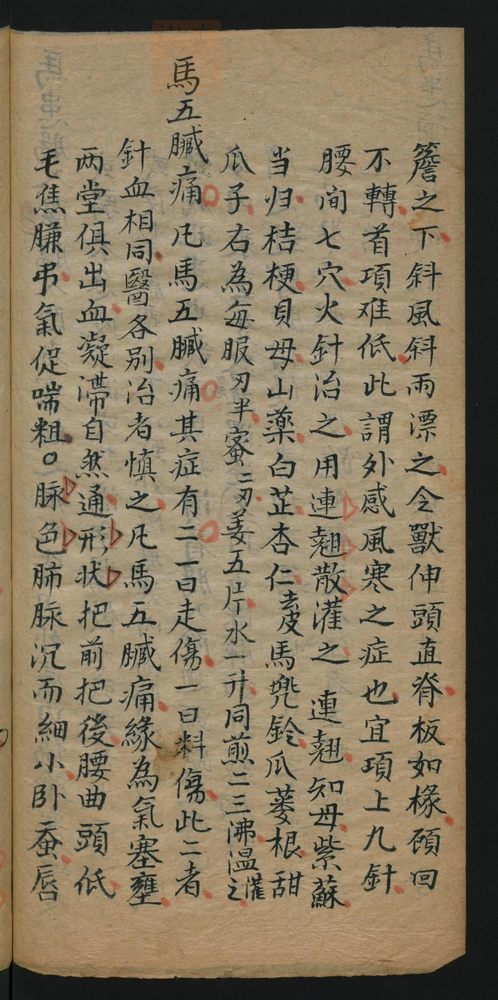 簷之下斜風斜雨漂之令獸伸頭直脊板如椽頋回
不轉首項难低此謂外感風寒之症也宜項上九針
腰间七穴火針治之用連翹散灌之 連翹知母紫蘇
当归桔梗貝母山藥白芷杏仁去皮馬兜鈴瓜蔞根甜
瓜子右為每服刃半蜜二刃姜五片水一升同煎二三沸温灌之
馬五臟痛凡馬五臟痛其症有二一曰走傷一曰料傷此二者
針血相同醫各别治者慎之凡馬五臟痛緣為氣塞壅
两堂俱出血凝滯自然通形状把前把後腰曲頭低
毛焦膁弔氣促喘粗〇脉色肺脉沉而細小卧蚕唇